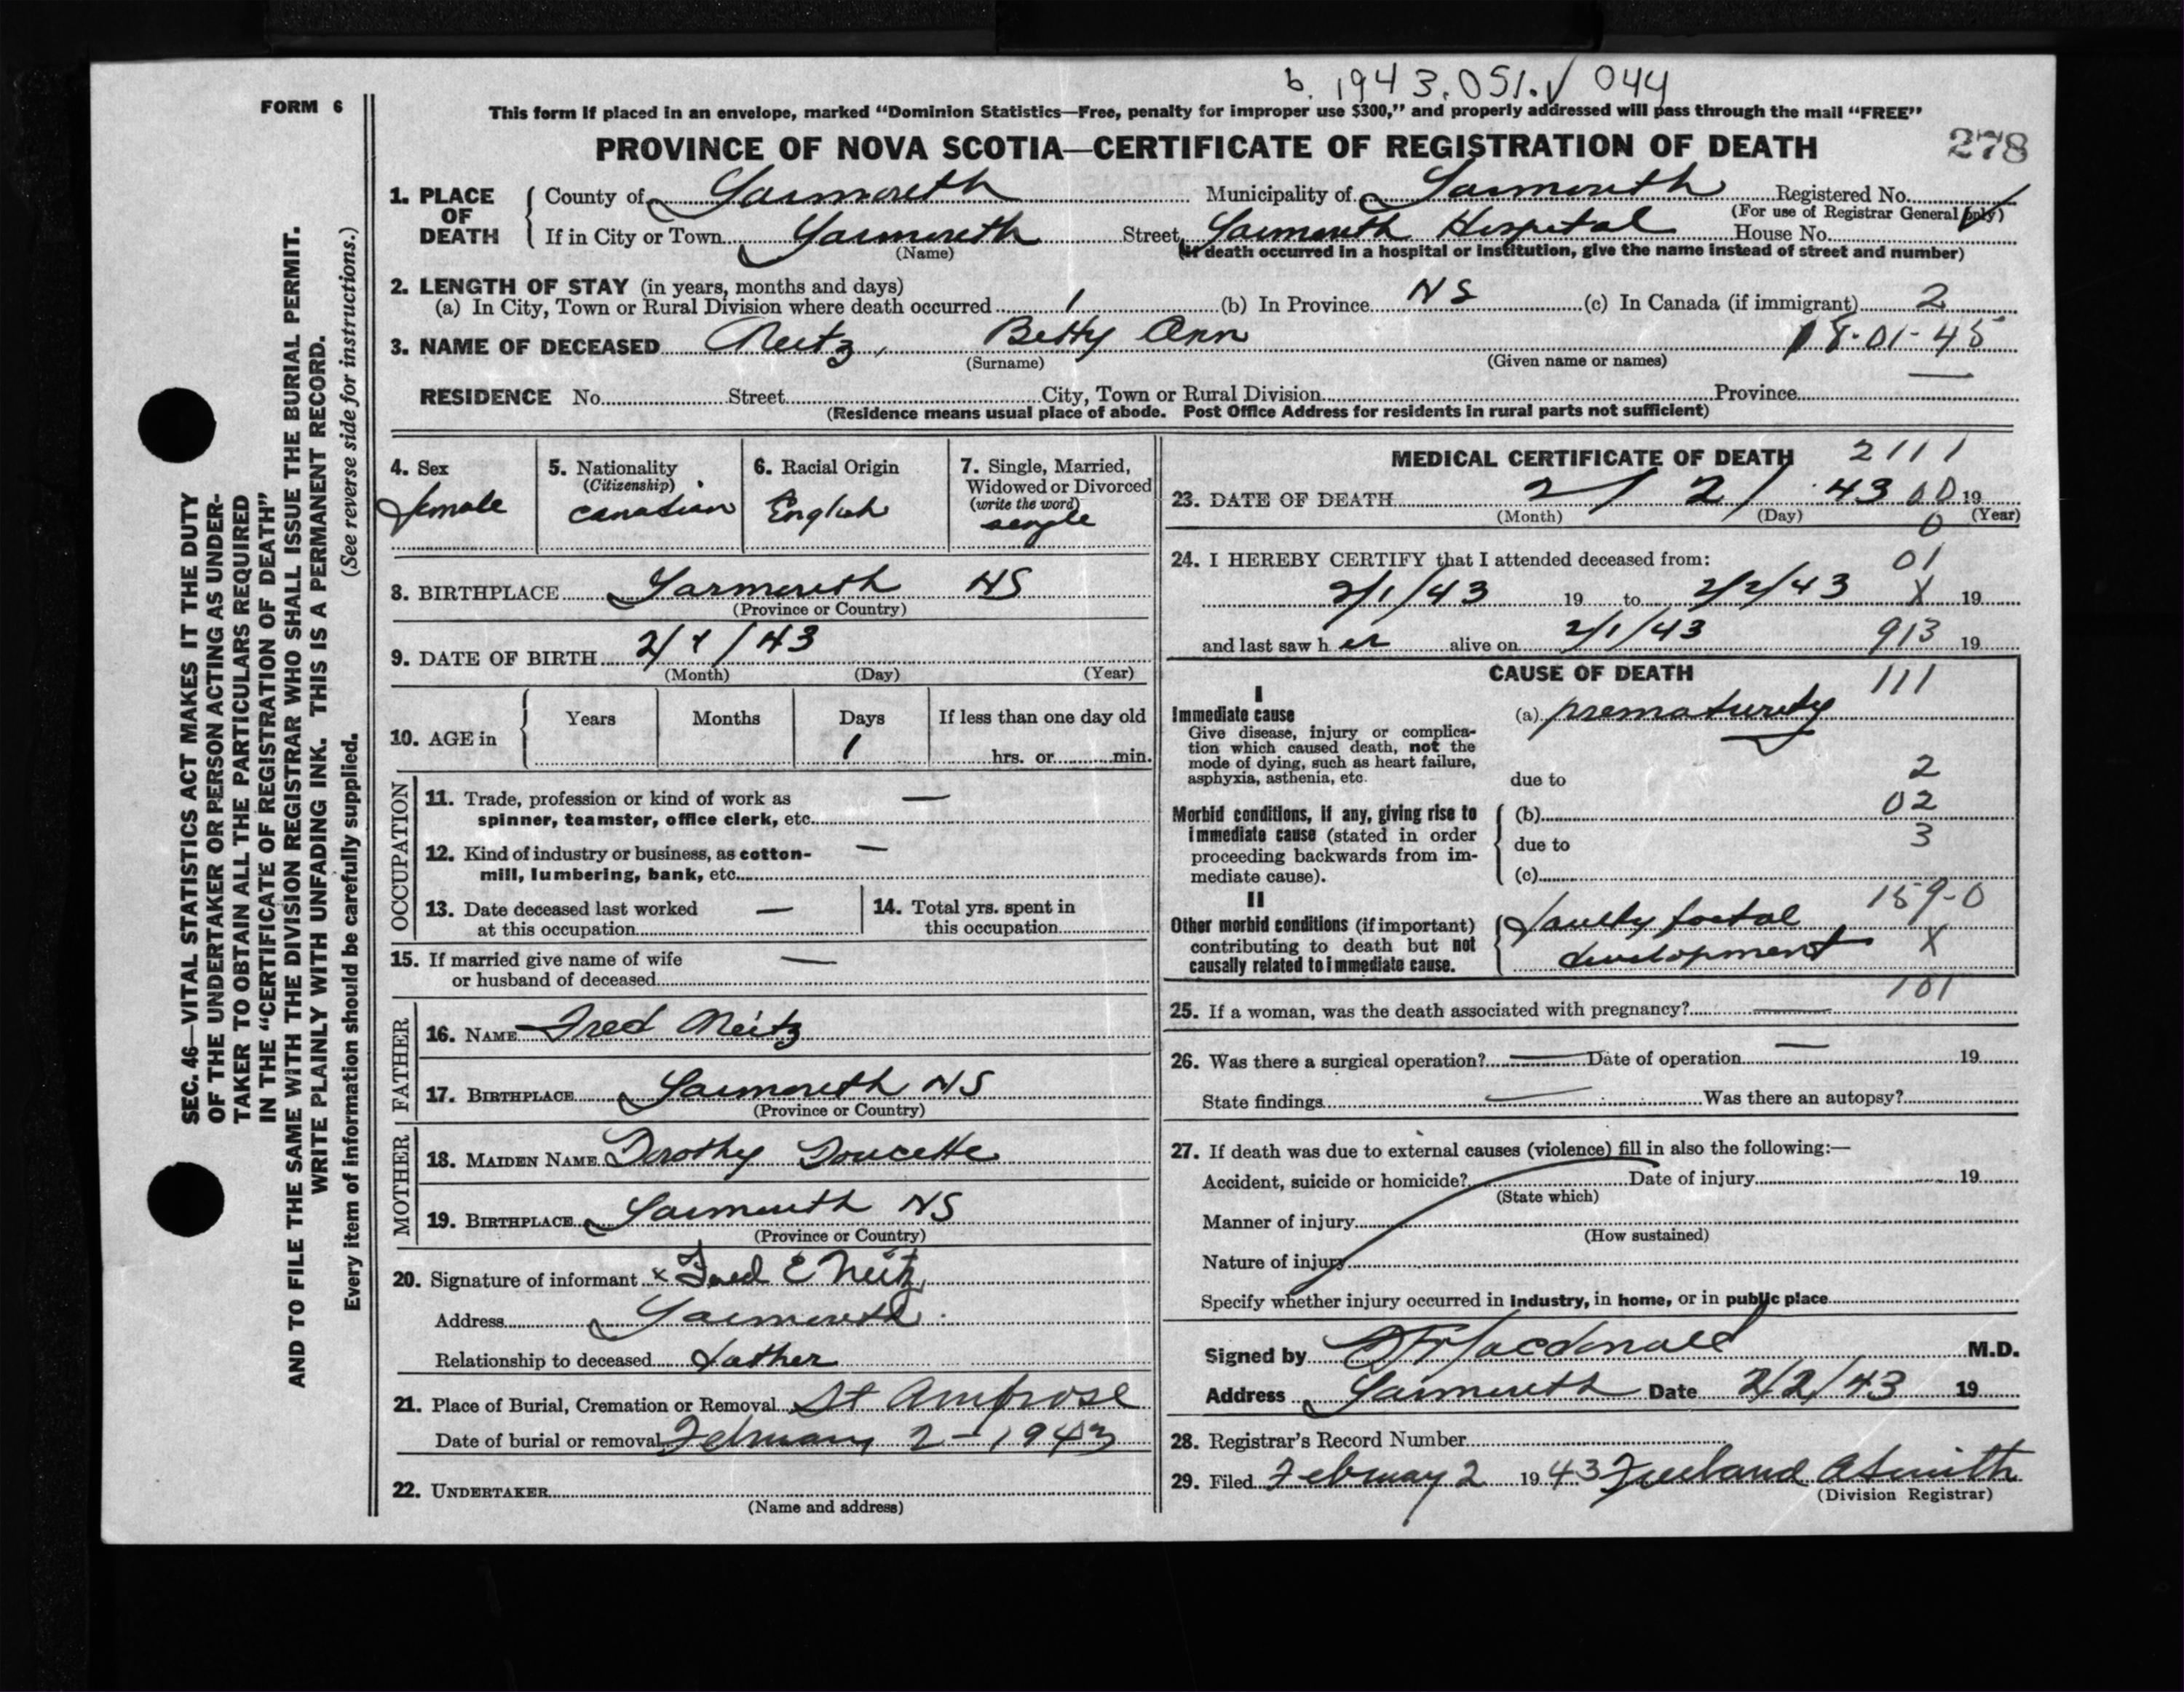 b. 1943.051.✓ 044
FORM 6
This form if placed in an envelope, marked "Dominion Statistics—Free, penalty for improper use $300," and properly addressed will pass through the mail "FREE"
PROVINCE OF NOVA SCOTIA—CERTIFICATE OF REGISTRATION OF DEATH
278
1. PLACE OF DEATH
County of Yarmouth Municipality of Yarmouth Registered No.
(For use of Registrar General only)
If in City or Town Yarmouth Street Yarmouth Hospital House No.
(Name) (If death occurred in a hospital or institution, give the name instead of street and number)
2. LENGTH OF STAY (in years, months and days)
(a) In City, Town or Rural Division where death occurred 1 (b) In Province NS (c) In Canada (if immigrant) 2
3. NAME OF DECEASED Neitz, Betty Ann 18-01-45
(Surname) (Given name or names)
RESIDENCE No. Street City, Town or Rural Division Province
(Residence means usual place of abode. Post Office Address for residents in rural parts not sufficient)
4. Sex
female
5. Nationality
(Citizenship)
Canadian
6. Racial Origin
English
7. Single, Married,
Widowed or Divorced
(write the word)
single
8. BIRTHPLACE Yarmouth NS
(Province or Country)
9. DATE OF BIRTH 2/1/43
(Month) (Day) (Year)
10. AGE in
Years Months Days If less than one day old
1 hrs. or min.
OCCUPATION
11. Trade, profession or kind of work as —
spinner, teamster, office clerk, etc.
12. Kind of industry or business, as cotton- —
mill, lumbering, bank, etc.
13. Date deceased last worked — 14. Total yrs. spent in
at this occupation this occupation
15. If married give name of wife —
or husband of deceased
FATHER
16. NAME Fred Neitz
17. BIRTHPLACE Yarmouth NS
(Province or Country)
MOTHER
18. MAIDEN NAME Dorothy Doucette
19. BIRTHPLACE Yarmouth NS
(Province or Country)
20. Signature of informant x Fred E Neitz
Address Yarmouth
Relationship to deceased father
21. Place of Burial, Cremation or Removal St Ambrose
Date of burial or removal February 2-1943
22. UNDERTAKER
(Name and address)
MEDICAL CERTIFICATE OF DEATH 2111
23. DATE OF DEATH 2/2/43 00 19
(Month) (Day) 0 (Year)
24. I HEREBY CERTIFY that I attended deceased from: 01
2/1/43 19 to 2/2/43 X 19
and last saw her alive on 2/1/43 913 19
CAUSE OF DEATH 111
I
Immediate cause (a) prematurity
Give disease, injury or complica-
tion which caused death, not the
mode of dying, such as heart failure,
asphyxia, asthenia, etc. due to 2
Morbid conditions, if any, giving rise to (b) 02
immediate cause (stated in order due to 3
proceeding backwards from im-
mediate cause). (c)
II 159-0
Other morbid conditions (if important) faulty foetal
contributing to death but not development X
causally related to immediate cause.
101
25. If a woman, was the death associated with pregnancy? —
26. Was there a surgical operation? — Date of operation — 19
State findings — Was there an autopsy?
27. If death was due to external causes (violence) fill in also the following:—
Accident, suicide or homicide? Date of injury 19
(State which)
Manner of injury
(How sustained)
Nature of injury
Specify whether injury occurred in industry, in home, or in public place
Signed by Macdonald M.D.
Address Yarmouth Date 2/2/43 19
28. Registrar's Record Number
29. Filed February 2 1943 Freeland A Smith
(Division Registrar)
SEC. 46—VITAL STATISTICS ACT MAKES IT THE DUTY
OF THE UNDERTAKER OR PERSON ACTING AS UNDER-
TAKER TO OBTAIN ALL THE PARTICULARS REQUIRED
IN THE "CERTIFICATE OF REGISTRATION OF DEATH"
AND TO FILE THE SAME WITH THE DIVISION REGISTRAR WHO SHALL ISSUE THE BURIAL PERMIT.
WRITE PLAINLY WITH UNFADING INK. THIS IS A PERMANENT RECORD.
Every item of information should be carefully supplied. (See reverse side for instructions.)